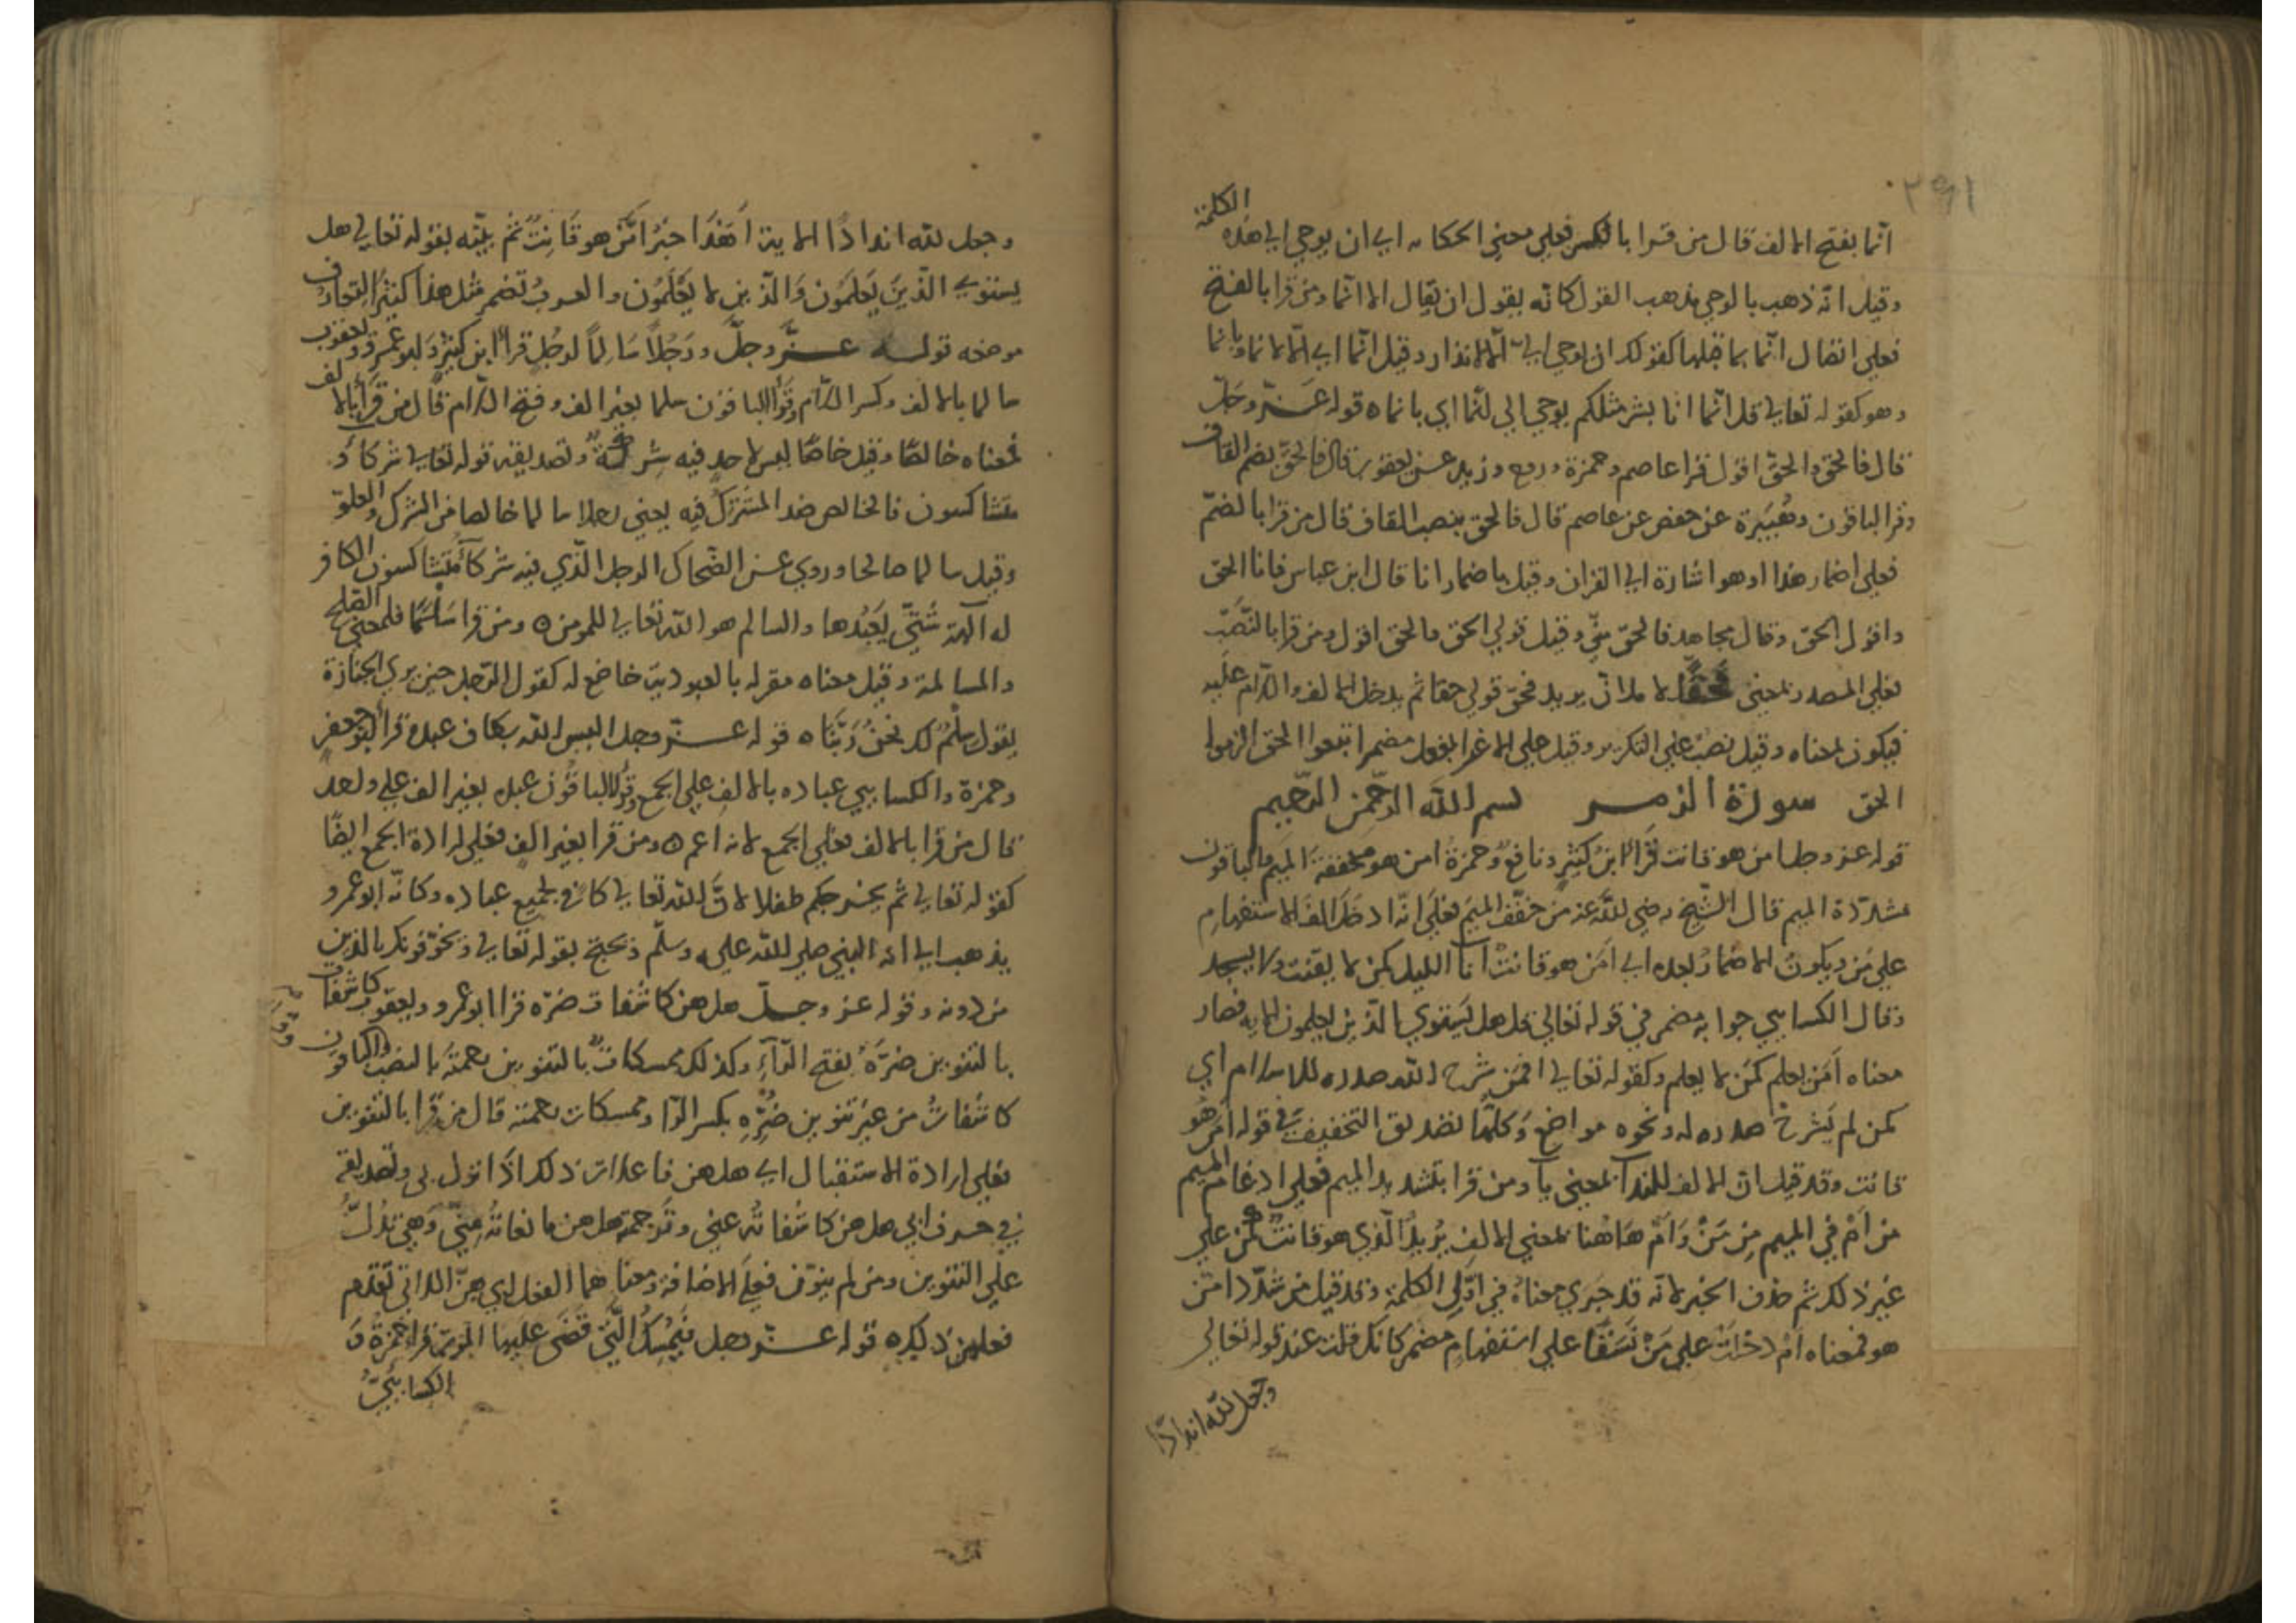 انما بفتح الالف قال من قرا بالكسر فعلي معني الحكاىه اي ان يوحي الي هذه الكلمة
وقيل انه ذهب بالوحي مذهب القول كانه يقول ان يقال الا انما ومن قرا بالفتح
فعلي اتصال انما بما قبلها كقولك ان يوحي الي الا الانذار وقيل انما اي الا لانما وبانما
وهو كقوله تعالي قل انما انا بشر مثلكم يوحي الي انما اي بانما ه قوله عز وجل
قال فالحق والحق اقول قرا عاصم وحمزة وروح وزيد عن يعقوب قال فالحق بضم القاف
وقرا الباقون وهُبَيرة عن حفص عن عاصم قال فالحق بنصب القاف قال من قرا بالضم
فعلي اضمار هذا او هو اشارة الي القران وقيل باضمار انا قال ابن عباس فانا الحق
واقول الحق وقال مجاهد فالحق مني وقيل قولي الحق فالحق اقول ومن قرا بالنصب
فعلي المصدر بمعني حقا لاملان يريد فحق قولي حقا ثم يدخل الالف واللام عليه
فيكون بمعناه وقيل نصب علي التكرير وقيل علي الاغرا لفعل مضمر اتبعوا الحق الزموا
الحق سورة الزمر بسم الله الرحمن الرحيم
قوله عز وجل امن هو قانت قَرَأ ابن كثير ونافع وحمزة امن هو مخففة الميم والباقون
مشدّدة الميم قال الشيخ رضي الله عنه من خفف الميم فعلي انه ادخل الف الاستفهام
علي من ويكون الاضمار بعده اي امن هو قانت آنا الليل كمن لا يقنت ولا يسجد
وقال الكسايي جوابه مضمر في قوله تعالي قل هل يستوي الذين يعلمون الايه فصار
معناه اَمَن يعلم كمن لا يعلم وكقوله تعالي افمن شرح الله صدره للاسلام اي
كمن لم يشرح صدره له ونحوه مواضع وكلها تصديق التخفيف في قوله امن هو
قانت وقد قيل ان الالف للندآ بمعني يا ومن قرا بتشديد الميم فعلي ادغام الميم
من اَمْ في الميم من مَنْ وَاَمْ هَاهنا بمعني الالف يُريد الذي هو قانت كمن علي
غير ذلك ثم حذف الخبر لانه قد جَري معناه في اول الكلمة وقد قيل من شدّد امّن
هو فمعناه اَمْ دخلَتْ علي مَنْ نسقا علي استفهام مضمر كانك قلت عند قوله تعالي
وجعل لله اندادًا
وجعل لله اندادًا الاية اَهَذا خير امّن هو قانت ثم بيّنه بقوله تعالي هل
يستوي الذين يعلمون والذين لا يعلمون والعرب تضمر مثل هذا كثيرا لتعارف
موضعه قوله عز وجل ورجلا سالما لرجل قرأ ابن كثير وابو عمرو ويعقوب
سالما بالالف وكسر اللام وقرأ الباقون سلما بغير الف وفتح اللام قال من قرأ بالالف
فمعناه خالصًا وقيل خاصًا ليس لاحد فيه شركة وتصديقه قوله تعالي شركآؤ
متشاكسون فالخالص ضد المشترك فيه يعني رجلا سالما خالصا من الشرك والعلوّ
وقيل سالما صالحا وروي عن الضحاك الرجل الذي فيه شركآء متشاكسون الكافر
له آلهة شتّي يعبدها والسالم هو الله تعالي للمومن ه ومن قرا سَلَمًا فلمعني الصلح
والمسالمة وقيل معناه مقر له بالعبودية خاضع له كقول الرجل حين يري الجنازة
يقول سلمٌ لك نحن رَبَّنَا ه قوله عز وجل اليس الله بكاف عبده قرأ ابو جعفر
وحمزة والكسايي عباده بالالف علي الجمع وقرأ الباقون عبده بغير الف علي واحد
قال من قرا بالالف فعلي الجمع لانه اعم ه ومن قرا بغير الف فعلي ارادة الجمع ايضًا
كقوله تعالي ثم يخرجكم طفلا لانّ الله تعالي كافي لجميع عباده وكانه ابو عمرو
يذهب الي انه النبي صلي الله عليه وسلم وتحتج بقوله تعالي ويخوّفونك بالذين
من دونه وقوله عز وجلّ هل هن كاشفات ضره قرا ابو عمرو ويعقوب كاشفات
بالتنوين ضرَّهُ بفتح الرآءِ وكذلك ممسكاتٌ بالتنوين رحمتَه بالنصب والباقون
كاشفاتُ من غير تنوين ضُرِّهِ بكسر الرا وممسكات رحمته قال من قرا بالتنوين
فعلي ارادة الاستقبال اي هل هن فاعلات ذلك اذًا نزل بي وتصديقه
في حرف ابي هل هن كاشفاته عني وترجمة هل هن مانعاته منّي وهي تدلّ
علي التنوين ومن لم ينوّن فعلي الاضافة ومعناهما الفعل اي هنّ اللاتي تقدم
فعلهن ذلك ه قوله عز وجل فيمسك التي قضي عليها الموت قرا حمزة وَ
الكسايئيّ